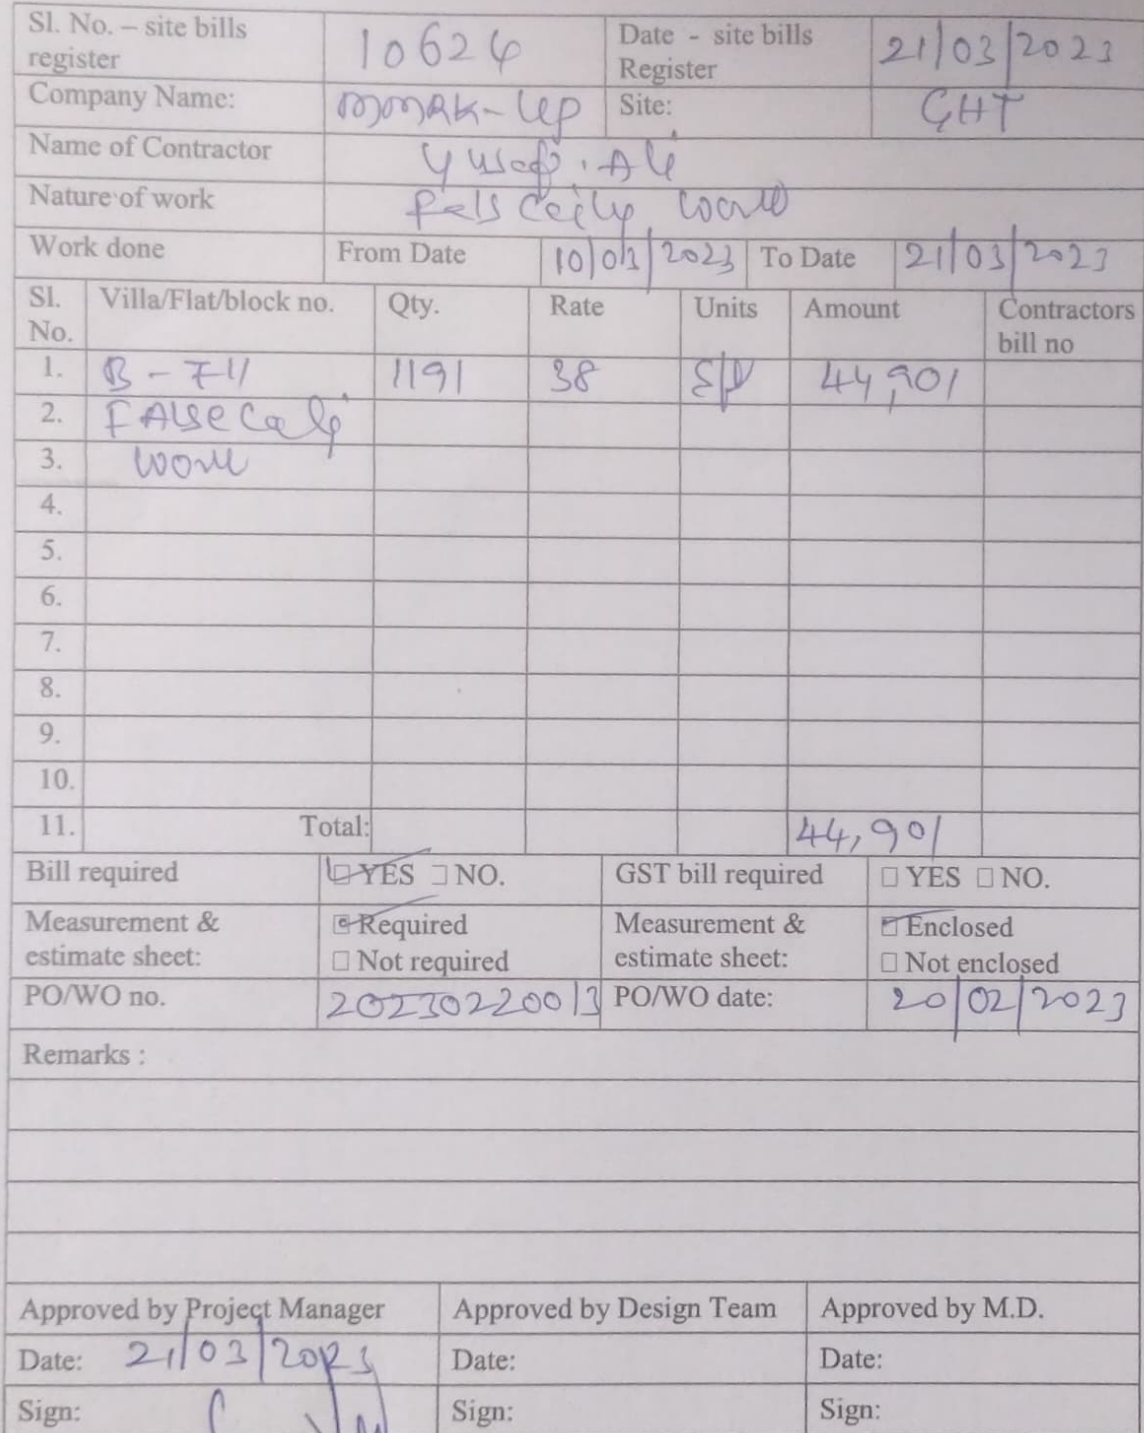 Sl. No. – site bills register 10624 Date - site bills Register 21/03/2023
Company Name: Site: GHT
Name of Contractor Yusef. Ali
Nature of work Fals work
Work done From Date 10/03/2023 To Date 21/03/2023
Sl. No. Villa/Flat/block no. Qty. Rate Units Amount Contractors bill no
1. B-711 1191 38 44,901
2. FAlse
3. work
4.
5.
6.
7.
8.
9.
10.
11. Total: 44,901
Bill required YES NO. GST bill required YES NO.
Measurement & estimate sheet: Required Not required Measurement & estimate sheet: Enclosed Not enclosed
PO/WO no. 20230220013 PO/WO date: 20/02/2023
Remarks :
Approved by Project Manager Approved by Design Team Approved by M.D.
Date: 21/03/2023 Date: Date:
Sign: Sign: Sign: